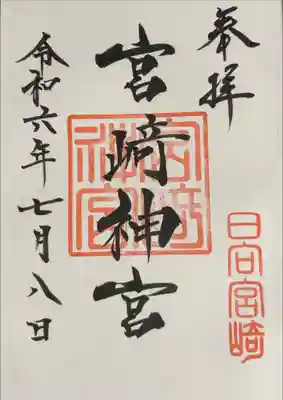 奉拝
日向宮崎
宮崎神宮
宮崎神宮
令和六年七月八日